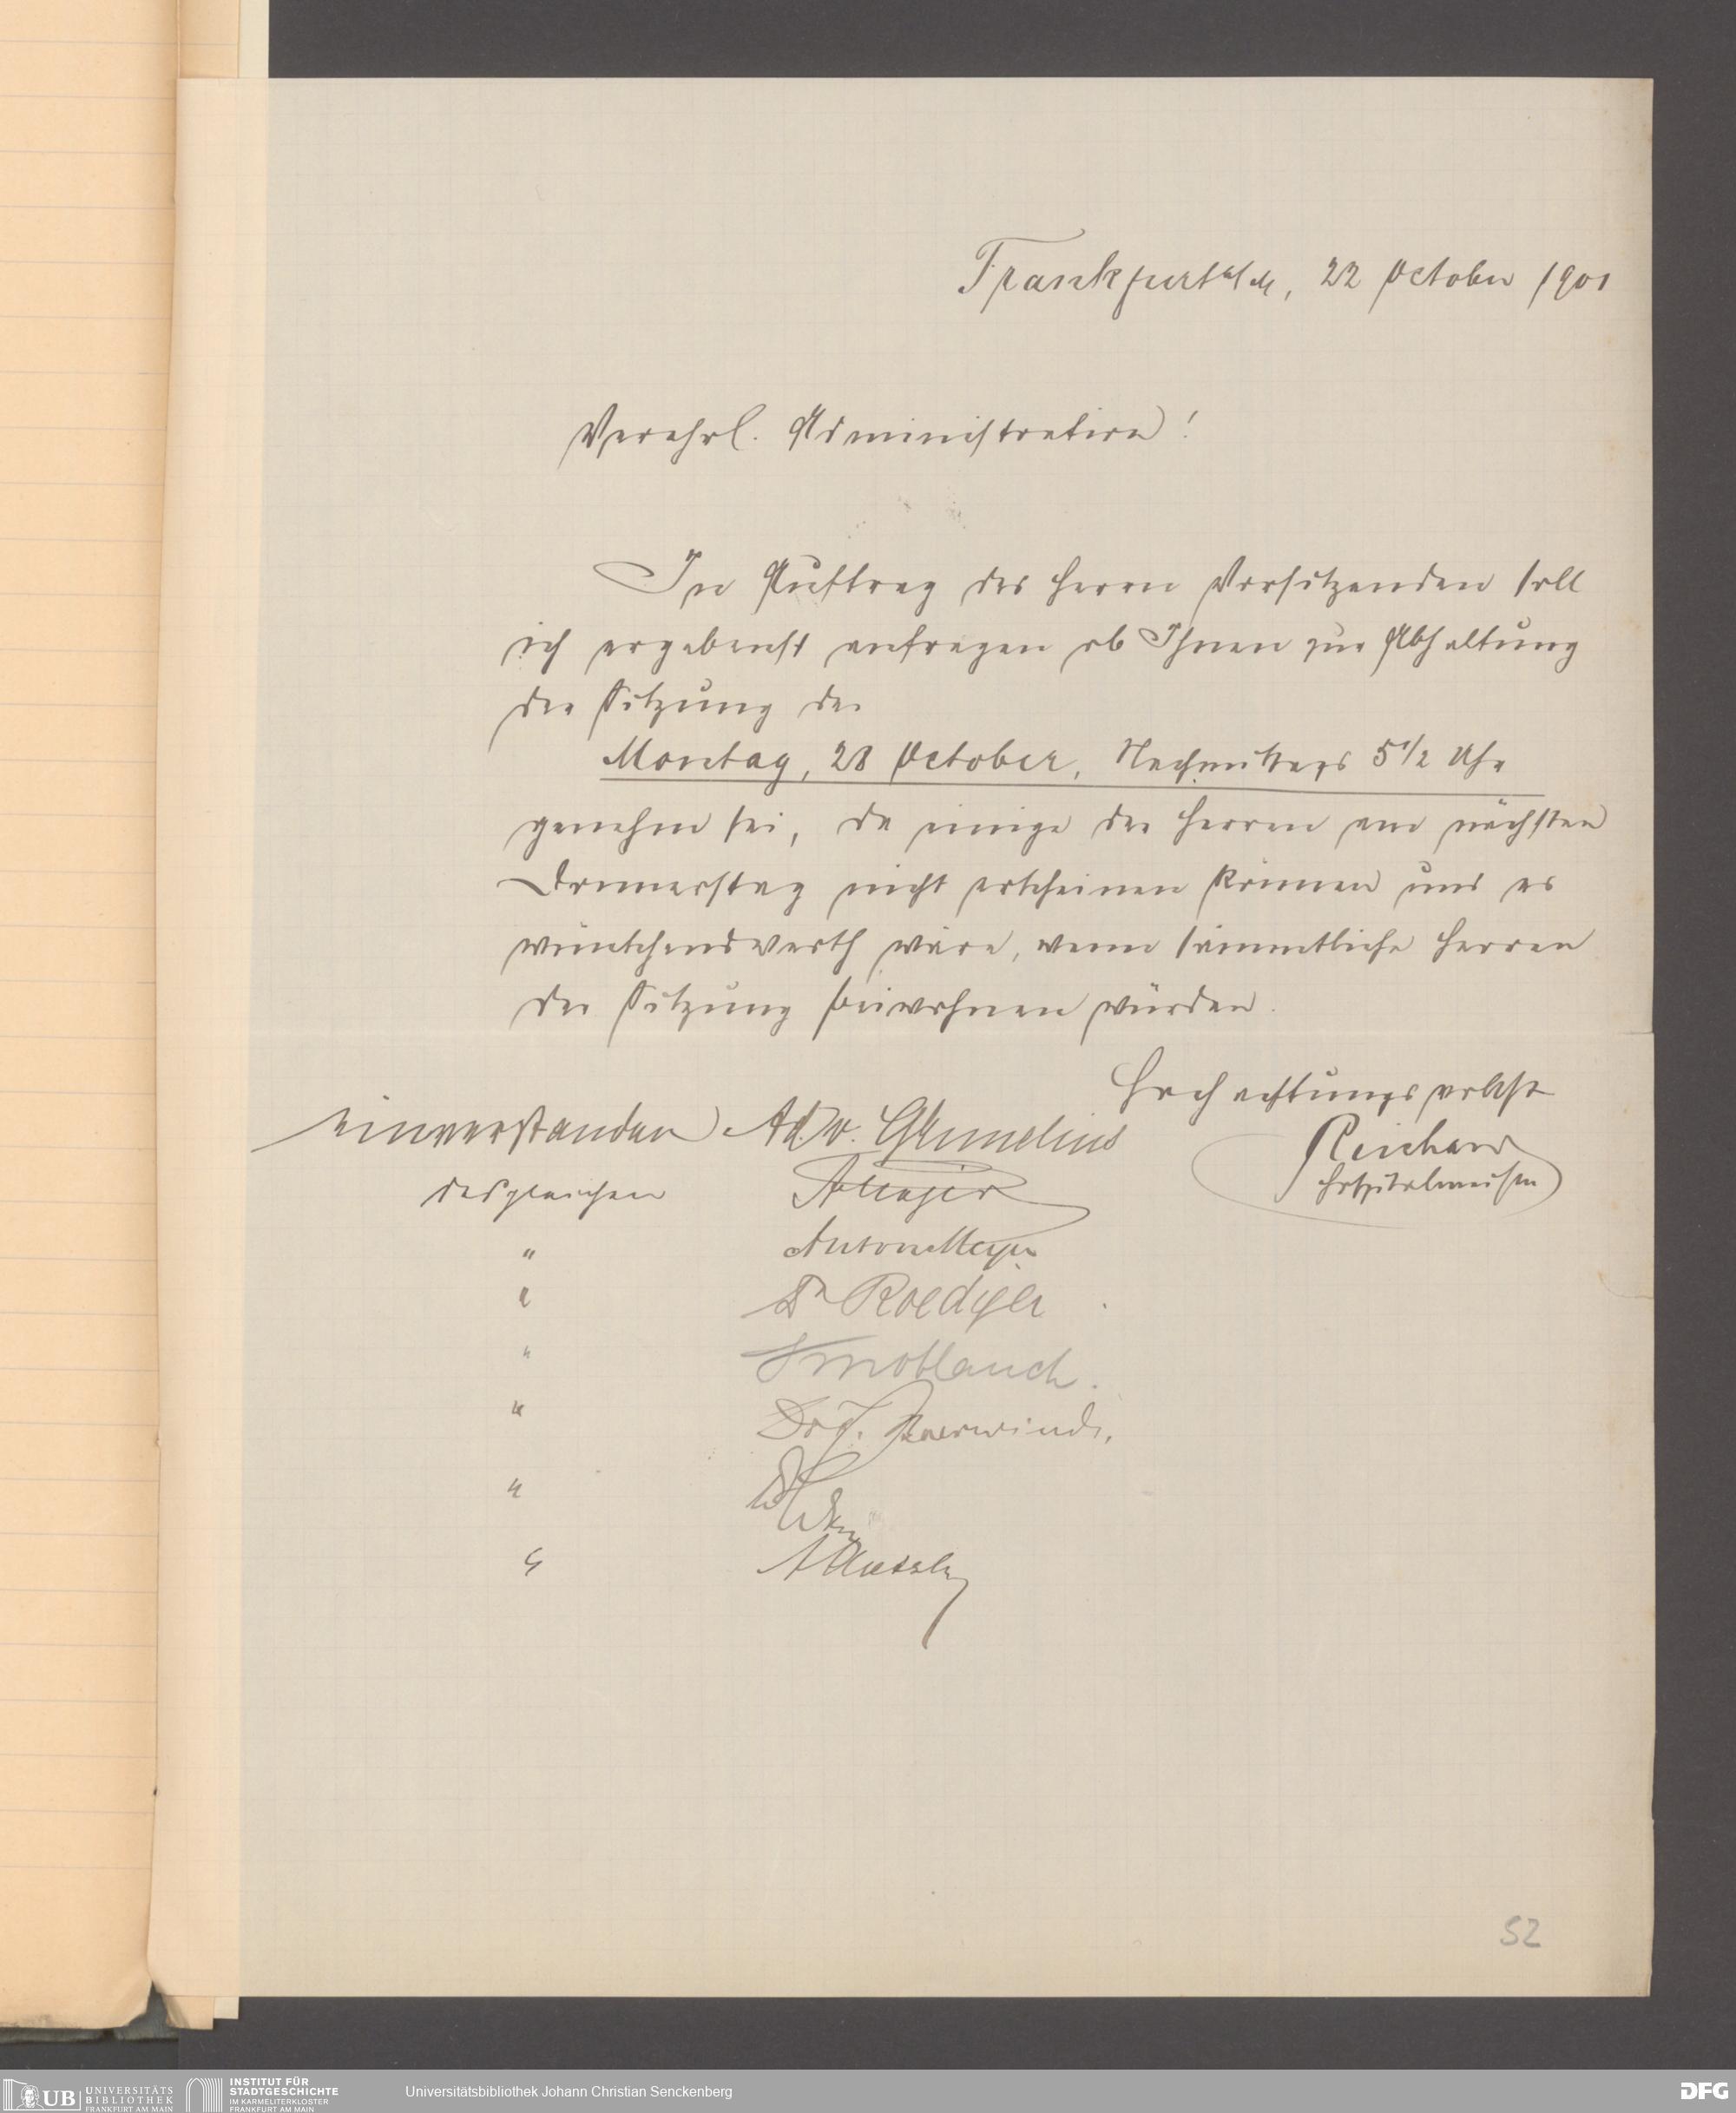 Frankfurt a/M, 22 October 1901
Verehrl. Administration!
Im Auftrag des Herrn Vorsitzenden soll
ich ergebenst anfragen ob Ihnen zur Abhaltung
der Sitzung der
Montag, 28 October, Nachmittags 5 1/2 Uhr
genehm sei, da einige der Herren am nächsten
Donnerstag nicht erscheinen können und es
wünschenswerth wäre, wenn sämmtliche Herren
der Sitzung beiwohnen würden.
Hochachtungsvollst
Reichard
Hospitalmeister
einverstanden Ad. v. Grunelius
desgleichen A Meyer
" Anton Meyer
" Dr Roediger
" Knoblauch.
" Dr J.
"
" A
52
UB UNIVERSITÄTS
BIBLIOTHEK
FRANKFURT AM MAIN
INSTITUT FÜR
STADTGESCHICHTE
IM KARMELITERKLOSTER
FRANKFURT AM MAIN
Universitätsbibliothek Johann Christian Senckenberg
DFG